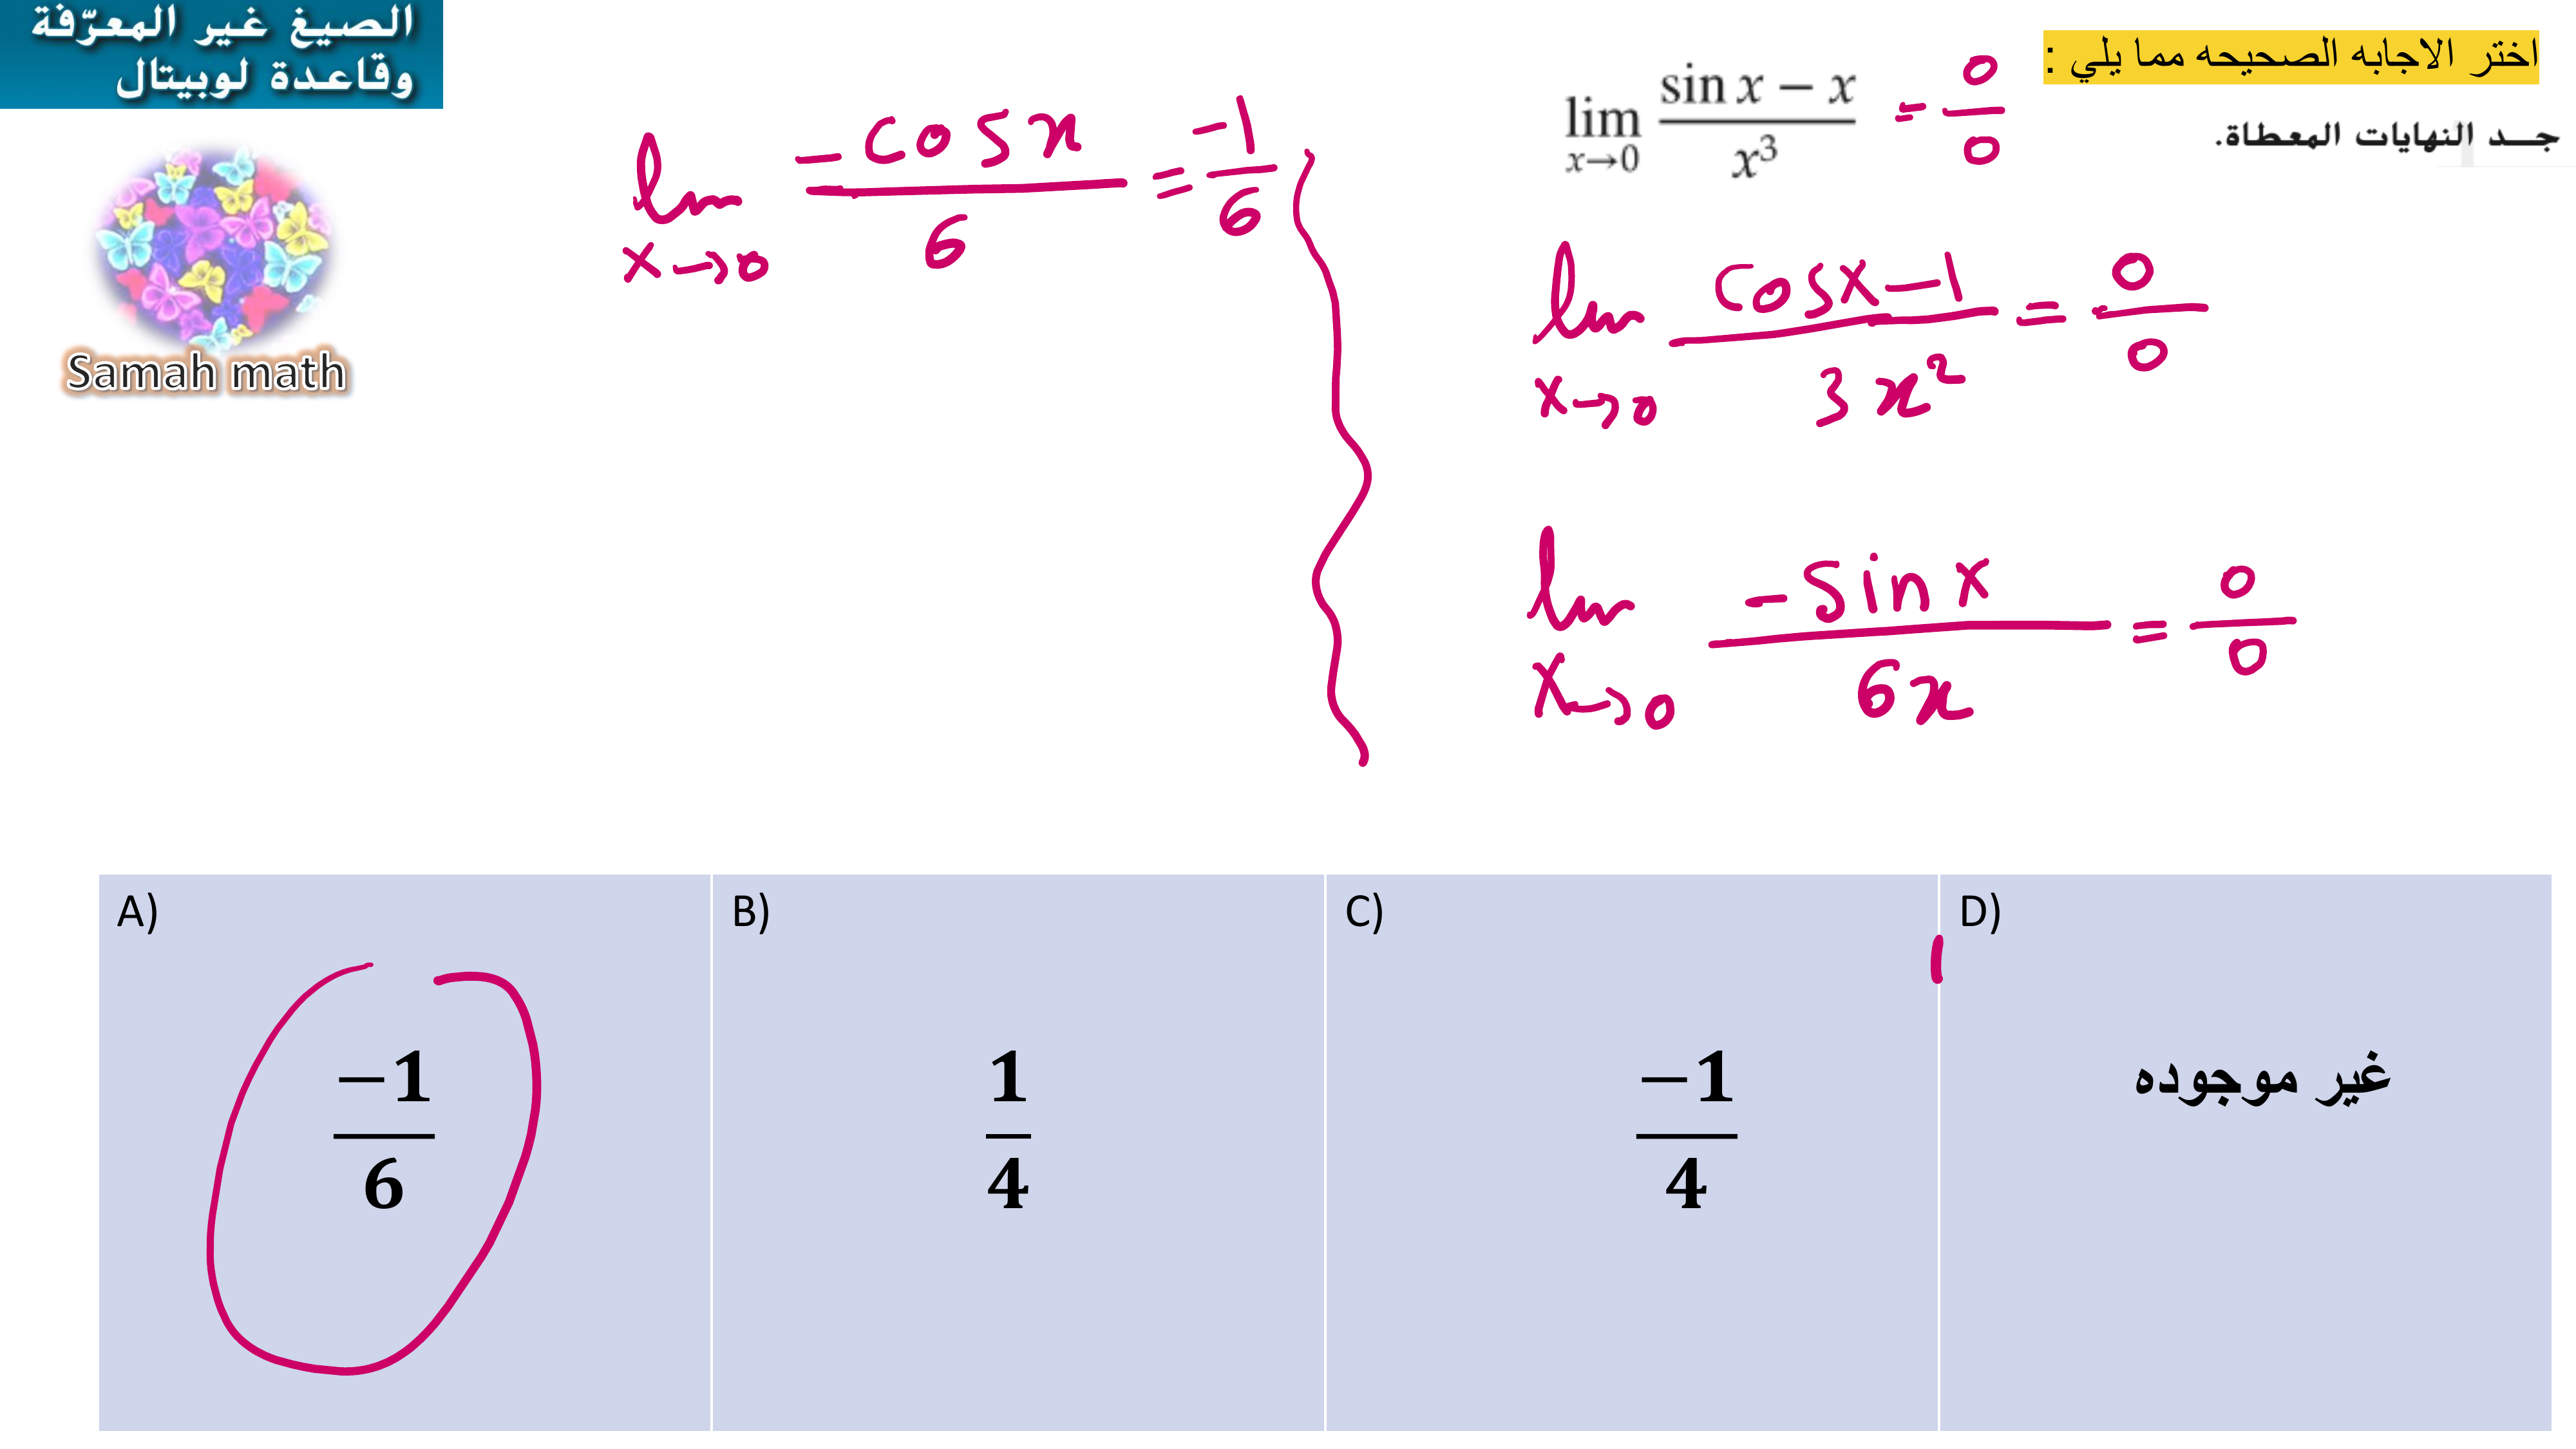 الصيغ غير المعرّفة
وقاعدة لوبيتال
Samah math
اختر الاجابه الصحيحه مما يلي :
جد النهايات المعطاة.
lim x→0 (sin x − x)/x³ = 0/0
lim x→0 (cosx−1)/(3x²) = 0/0
lim x→0 (−sinx)/(6x) = 0/0
lim x→0 (−cosx)/6 = −1/6
A) −1/6
B) 1/4
C) −1/4
D) غير موجوده